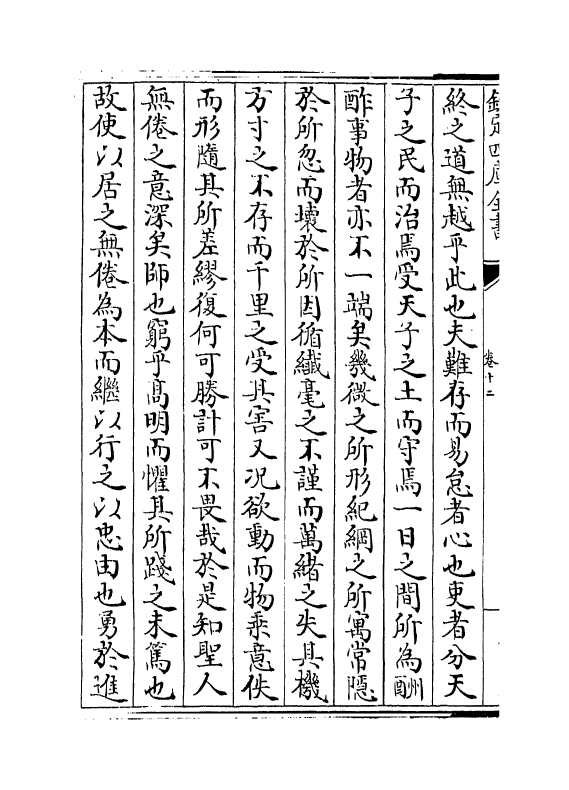 欽定四庫全書
卷十二
終之道無越乎此也夫難存而易怠者心也吏者分天
子之民而治焉受天子之土而守焉一日之間所為酬
酢事物者亦不一端矣幾微之所形紀綱之所寓常隱
於所忽而壊於所因循纖毫之不謹而萬緒之失其機
方寸之不存而千里之受其害又况欲動而物乘意佚
而形隨其所差繆復何可勝計可不畏哉於是知聖人
無倦之意深矣師也窮乎髙明而懼其所踐之未篤也
故使以居之無倦為本而繼以行之以忠由也勇於進